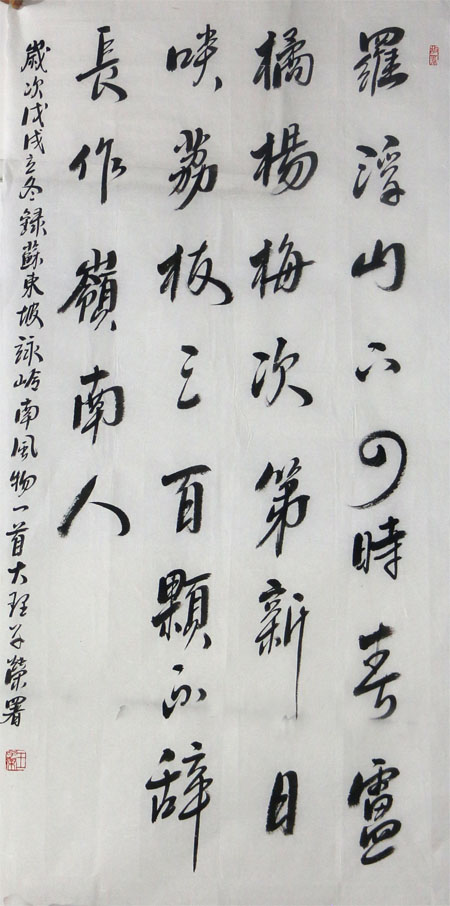 羅浮山下四時春盧
橘楊梅次第新日
啖荔枝三百顆不辭
長作嶺南人
歲次戊戌立冬録蘇東坡詠岭南風物一首大理子榮署